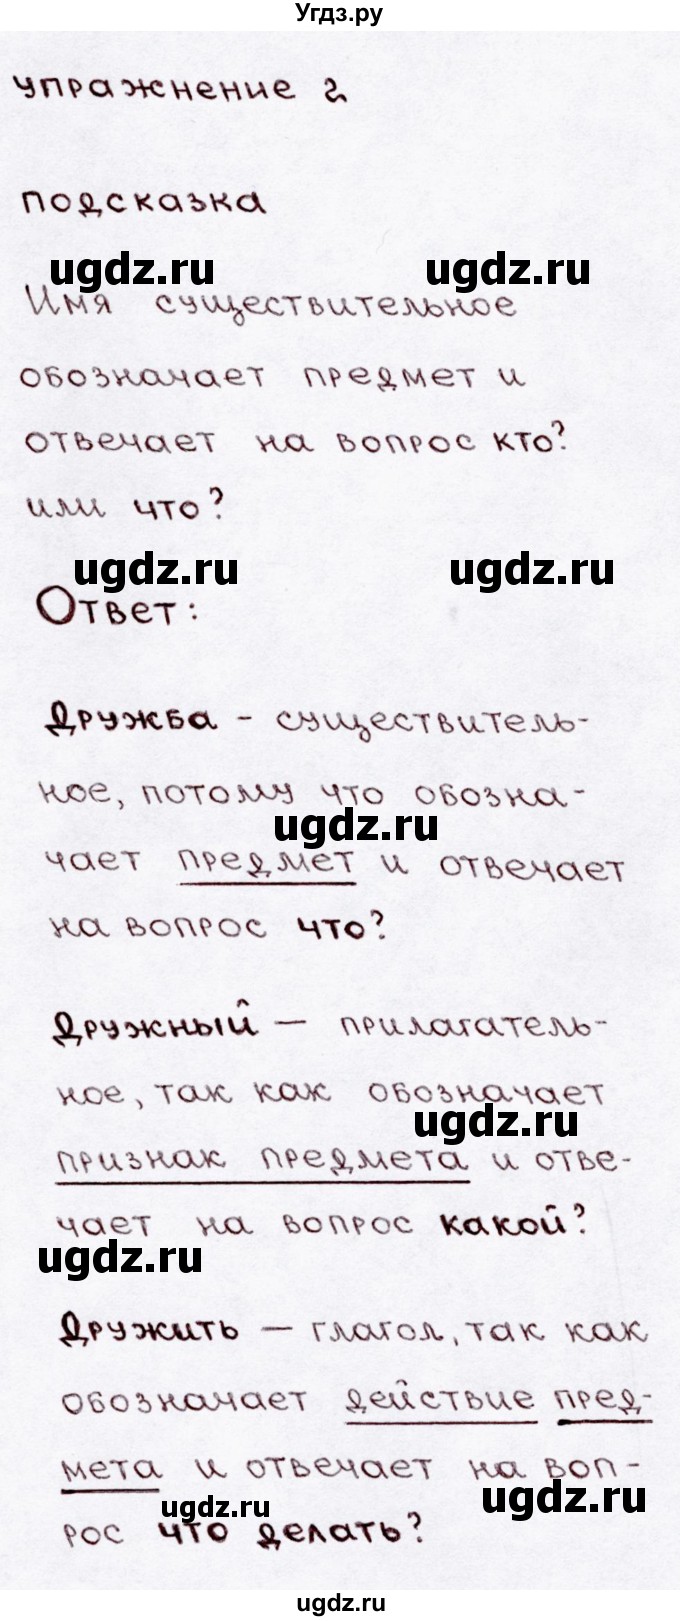 Угдз.ру
упражнение 2
подсказка
ugdz.ru ugdz.ru
Имя существительное
обозначает предмет и
отвечает на вопрос кто?
или что?
ugdz.ru ugdz.ru
Ответ:
Дружба - существитель-
ное, потому что обозна-
ugdz.ru
чает предмет и отвечает
на вопрос что?
Дружный — прилагатель-
ное, так как обозначает
ugdz.ru
признак предмета и отве-
чает на вопрос какой?
ugdz.ru
Дружить — глагол, так как
обозначает действие пред-
мета и отвечает на воп-
ugdz.ru ugdz.ru
рос что делать?
ugdz.ru